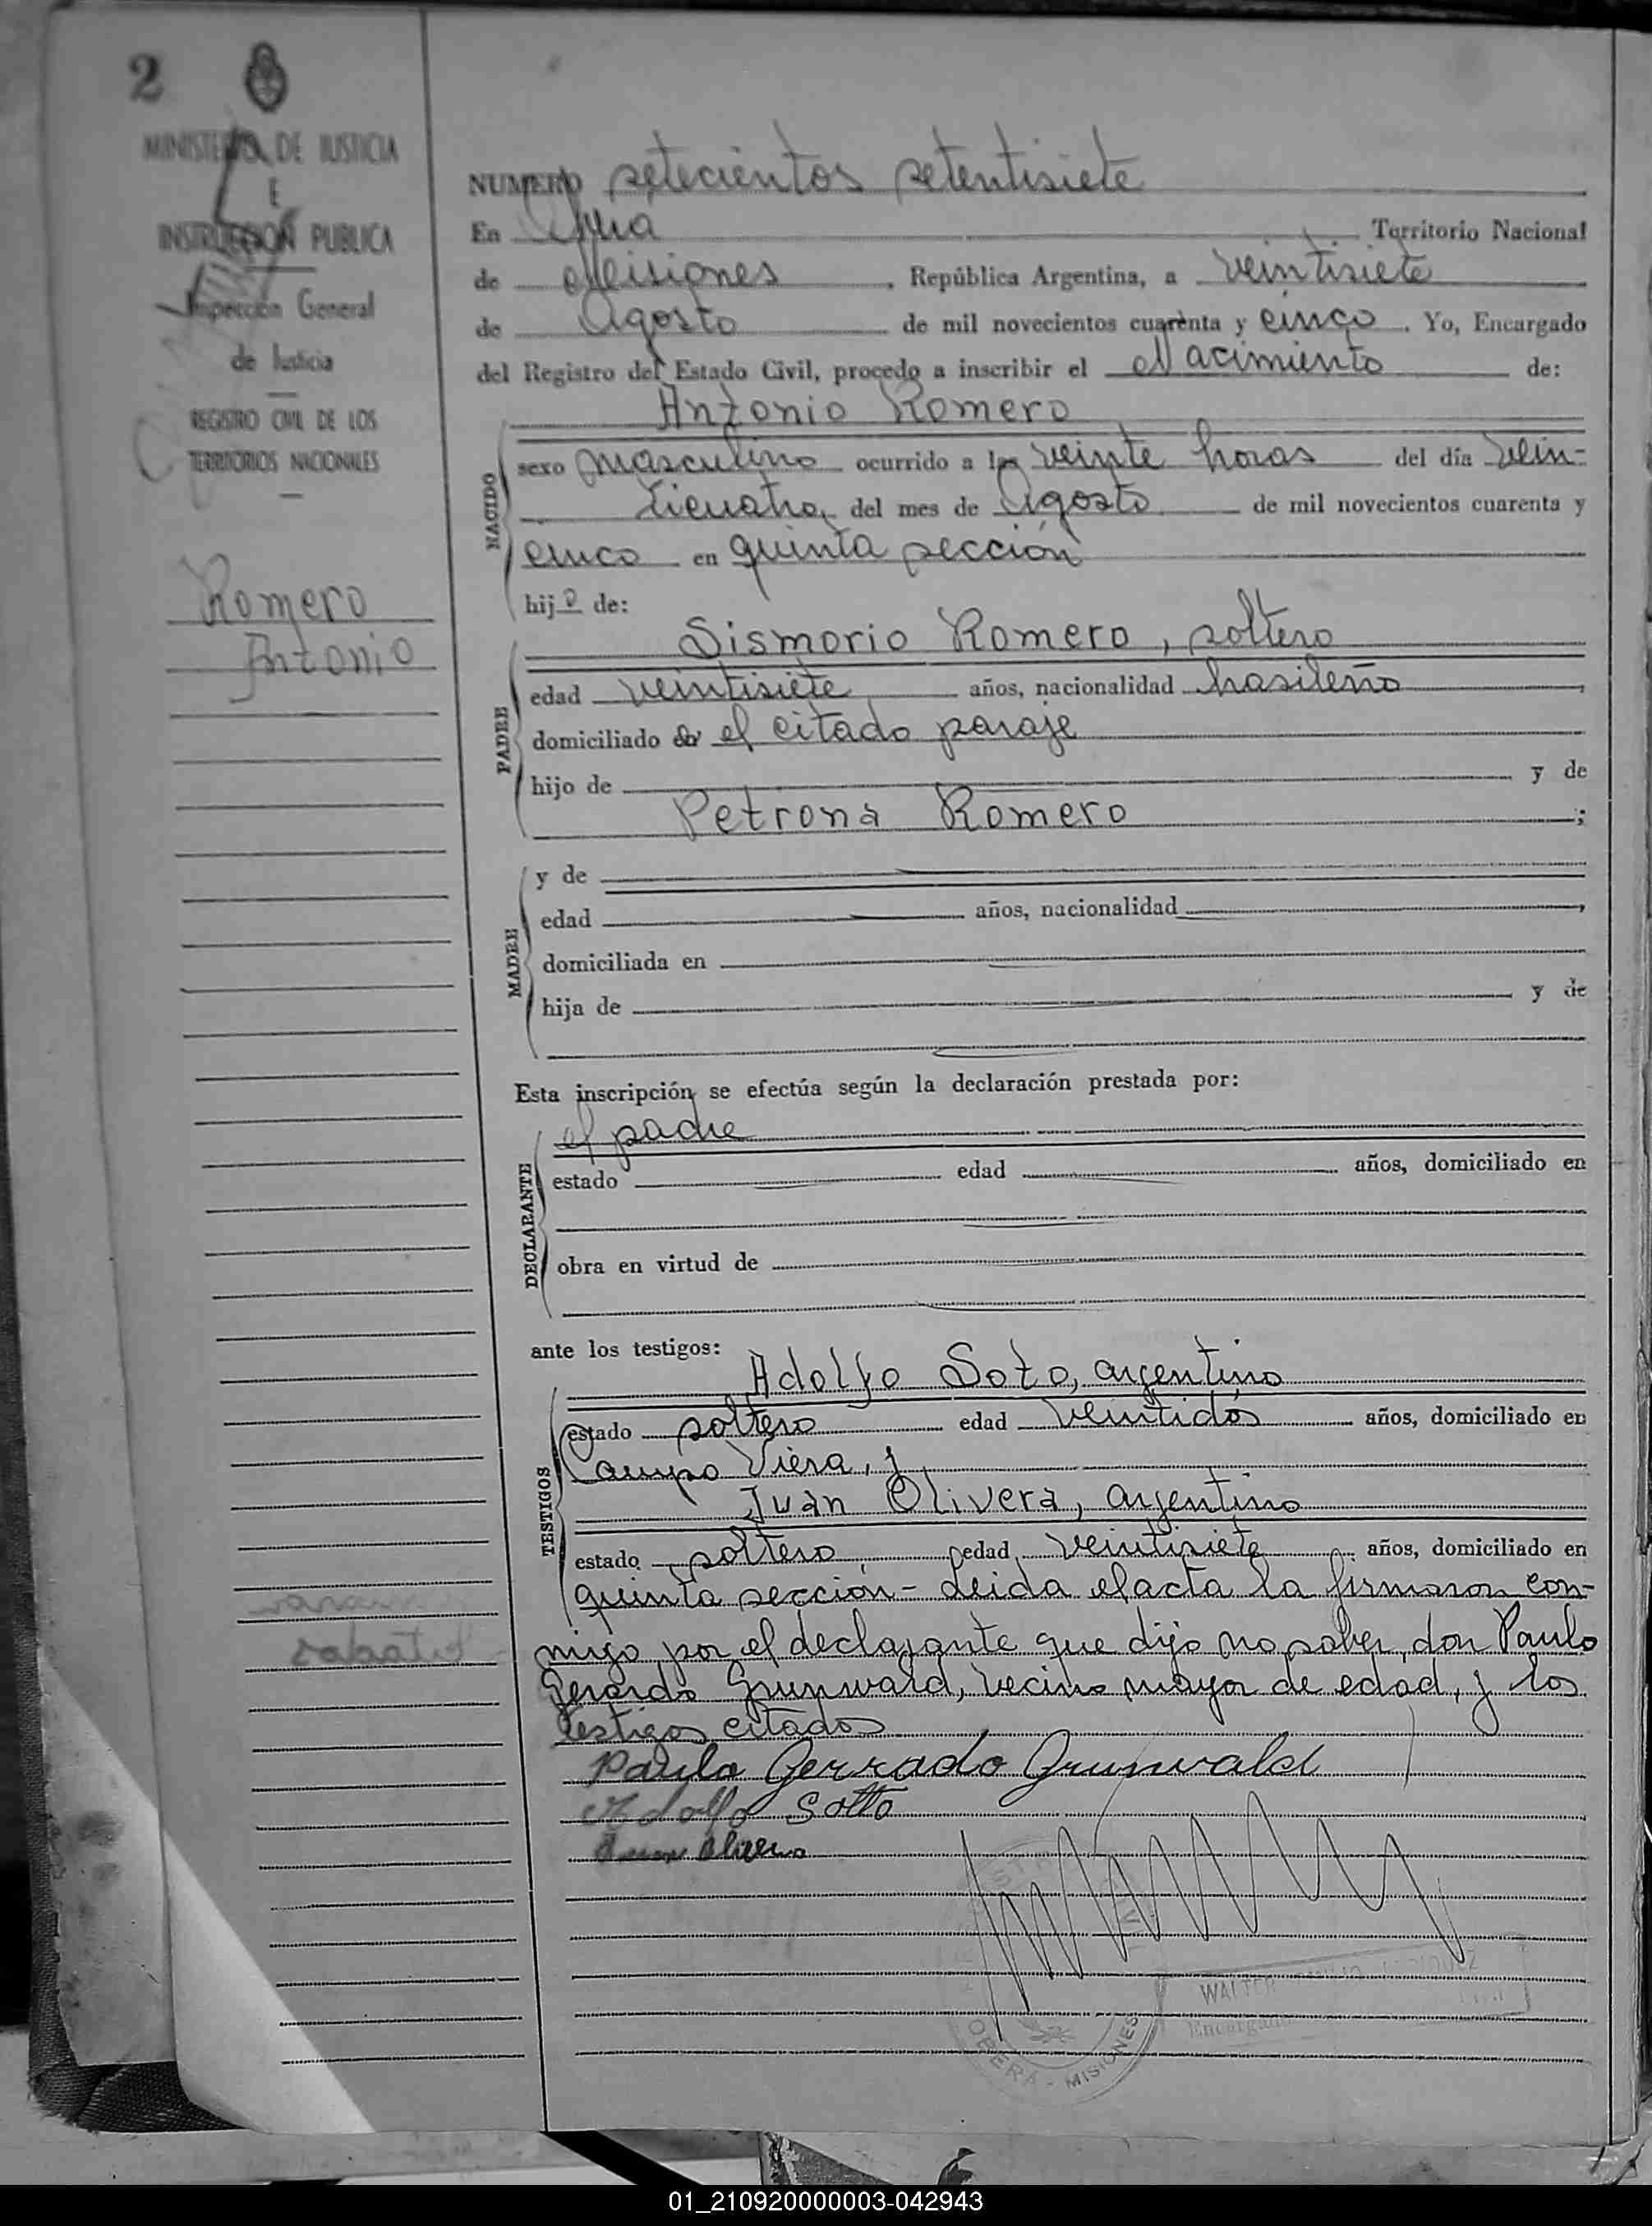 2
MINISTERIO DE JUSTICIA
E
INSTRUCCION PUBLICA
Inspección General
de Justicia
REGISTRO CIVIL DE LOS
TERRITORIOS NACIONALES
Romero
Antonio
NUMERO setecientos setentisiete
En Territorio Nacional
de Misiones, República Argentina, a veintisiete
de Agosto de mil novecientos cuarenta y cinco. Yo, Encargado
del Registro del Estado Civil, procedo a inscribir el Nacimiento de:
Antonio Romero
NACIDO
sexo masculino ocurrido a las veinte horas del día vein-
ticuatro, del mes de Agosto de mil novecientos cuarenta y
cinco en quinta sección
hijo de:
PADRE
Sismorio Romero, soltero
edad veintisiete años, nacionalidad brasileño
domiciliado en el citado paraje
hijo de y de
Petrona Romero ;
MADRE
y de
edad años, nacionalidad ,
domiciliada en
hija de y de
Esta inscripción se efectúa según la declaración prestada por:
DECLARANTE
el padre
estado edad años, domiciliado en
obra en virtud de
ante los testigos:
TESTIGOS
Adolfo Soto, argentino
estado soltero edad veintidós años, domiciliado en
Campo Viera, y
Juan Olivera, argentino
estado soltero edad veintisiete años, domiciliado en
quinta sección - Leida el acta la firmaron con-
migo por el declarante que dijo no saber, don Paulo
Gerardo Grunwald, vecino mayor de edad, y los
testigos citados
Paulo Gerrado Grunwald
Adolfo Sotto
Juan Olivera
WALTER
Encargado
OBERA - MISIONES
01_210920000003-042943